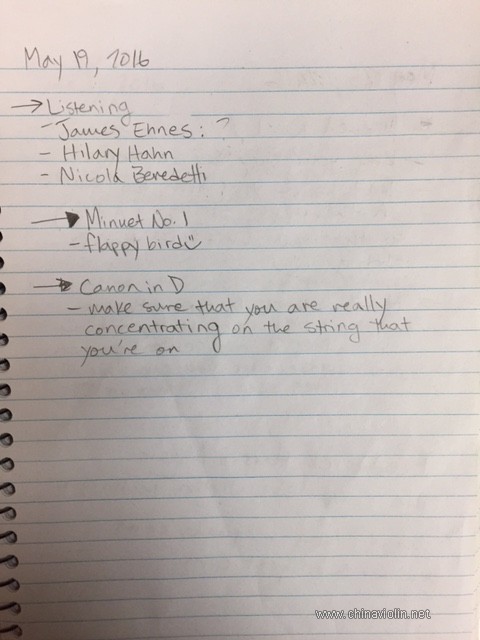 May 19, 2016
→ Listening
- James Ehnes: ?
- Hilary Hahn
- Nicola Beredetti
→ Minuet No. 1
- flappy bird
→ Canon in D
- make sure that you are really
concentrating on the string that
you're on
www.chinaviolin.net